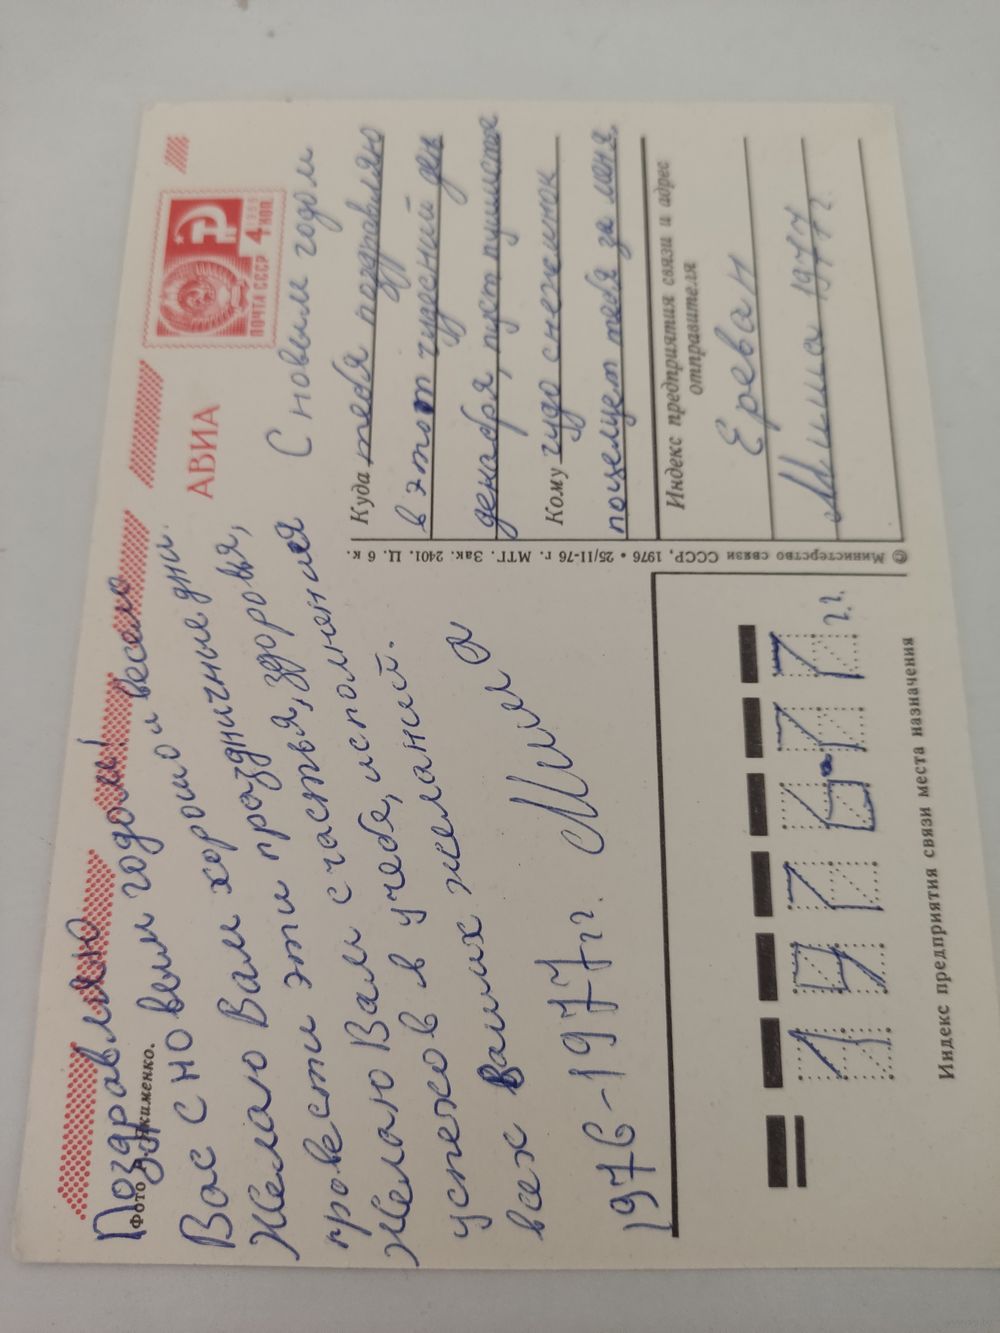 Поздравляю
Фото А. Якименко.
Вас с новым годом!
Желаю Вам хорошо и весело
провести эти праздничные дни.
Желаю Вам счастья, здоровья,
успехов в учебе, исполнения
всех Ваших желаний.
1976-1977гг. Миша
АВИА
ПОЧТА СССР 4 КОП.
С новым годом
Куда тебя поздравляю
в этот чудесний ден
декабря, пуст пушистое
Кому чудо снежинок
поцелует тебя за меня.
Индекс предприятия связи и адрес
отправителя
Ереван
Миша 1977г.
© Министерство связи СССР, 1976 • 25/II-76 г. МТГ. Зак. 2401. Ц. 6 к.
197677 г.г.
Индекс предприятия связи места назначения